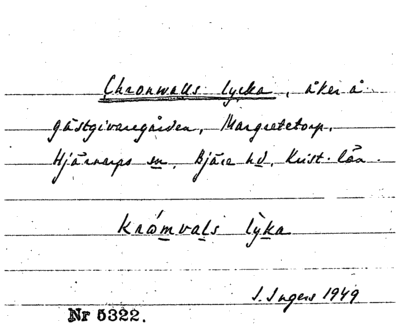 Chronwalls lycka, åker å
gästgivaregården, Margretetorp,
Hjärnarps sn, Bjäre hd, Krist. län.
Krómvals lỳka
I. Ingers 1949
Nr 5322.